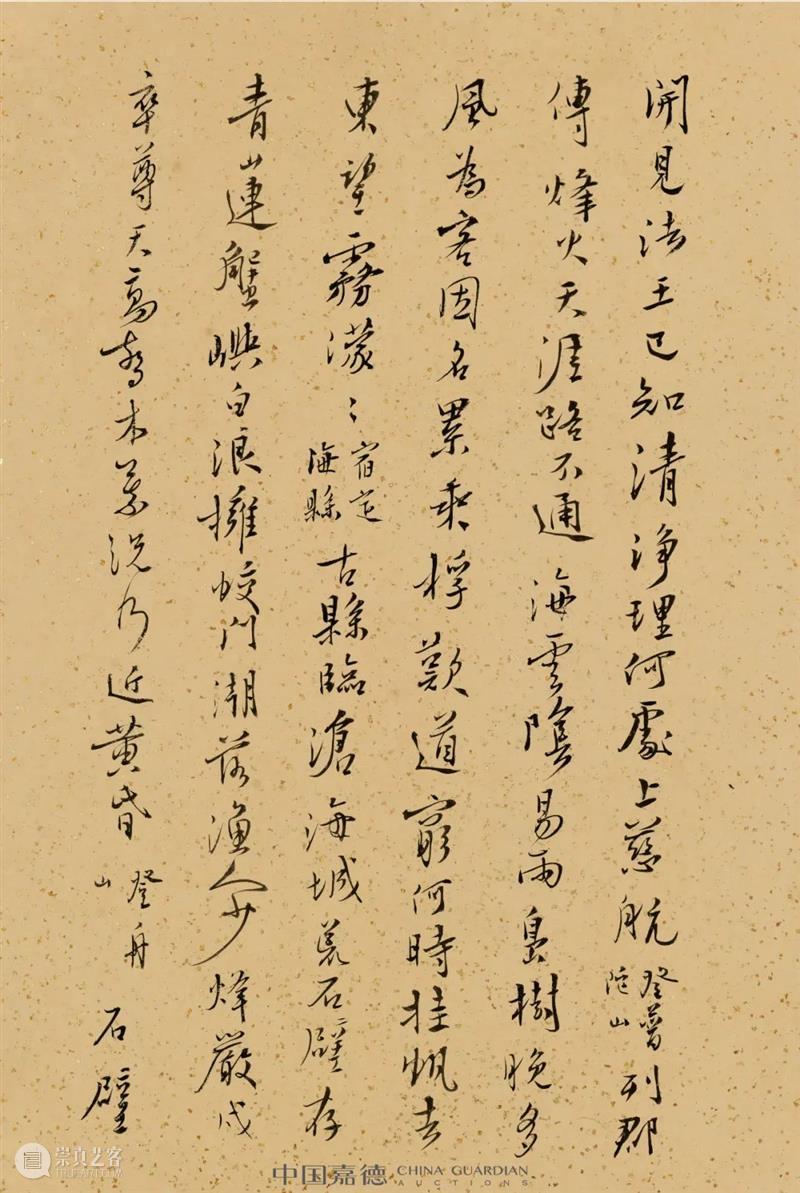 開見法王已知清淨理何處上慈航登普陀山列郡
傳烽火天涯路不通海雲陰易雨島樹晚多
風為客因名累乘桴歎道窮何時挂帆去
東望霧濛〻宿定海縣古縣臨滄海城荒石壁存
青山連蟹嶼白浪擁蛟門潮落漁人少烽嚴戍
卒尊天高喬木落況乃近黃昏登舟山石壁
中国嘉德 CHINA GUARDIAN AUCTIONS
崇真艺客